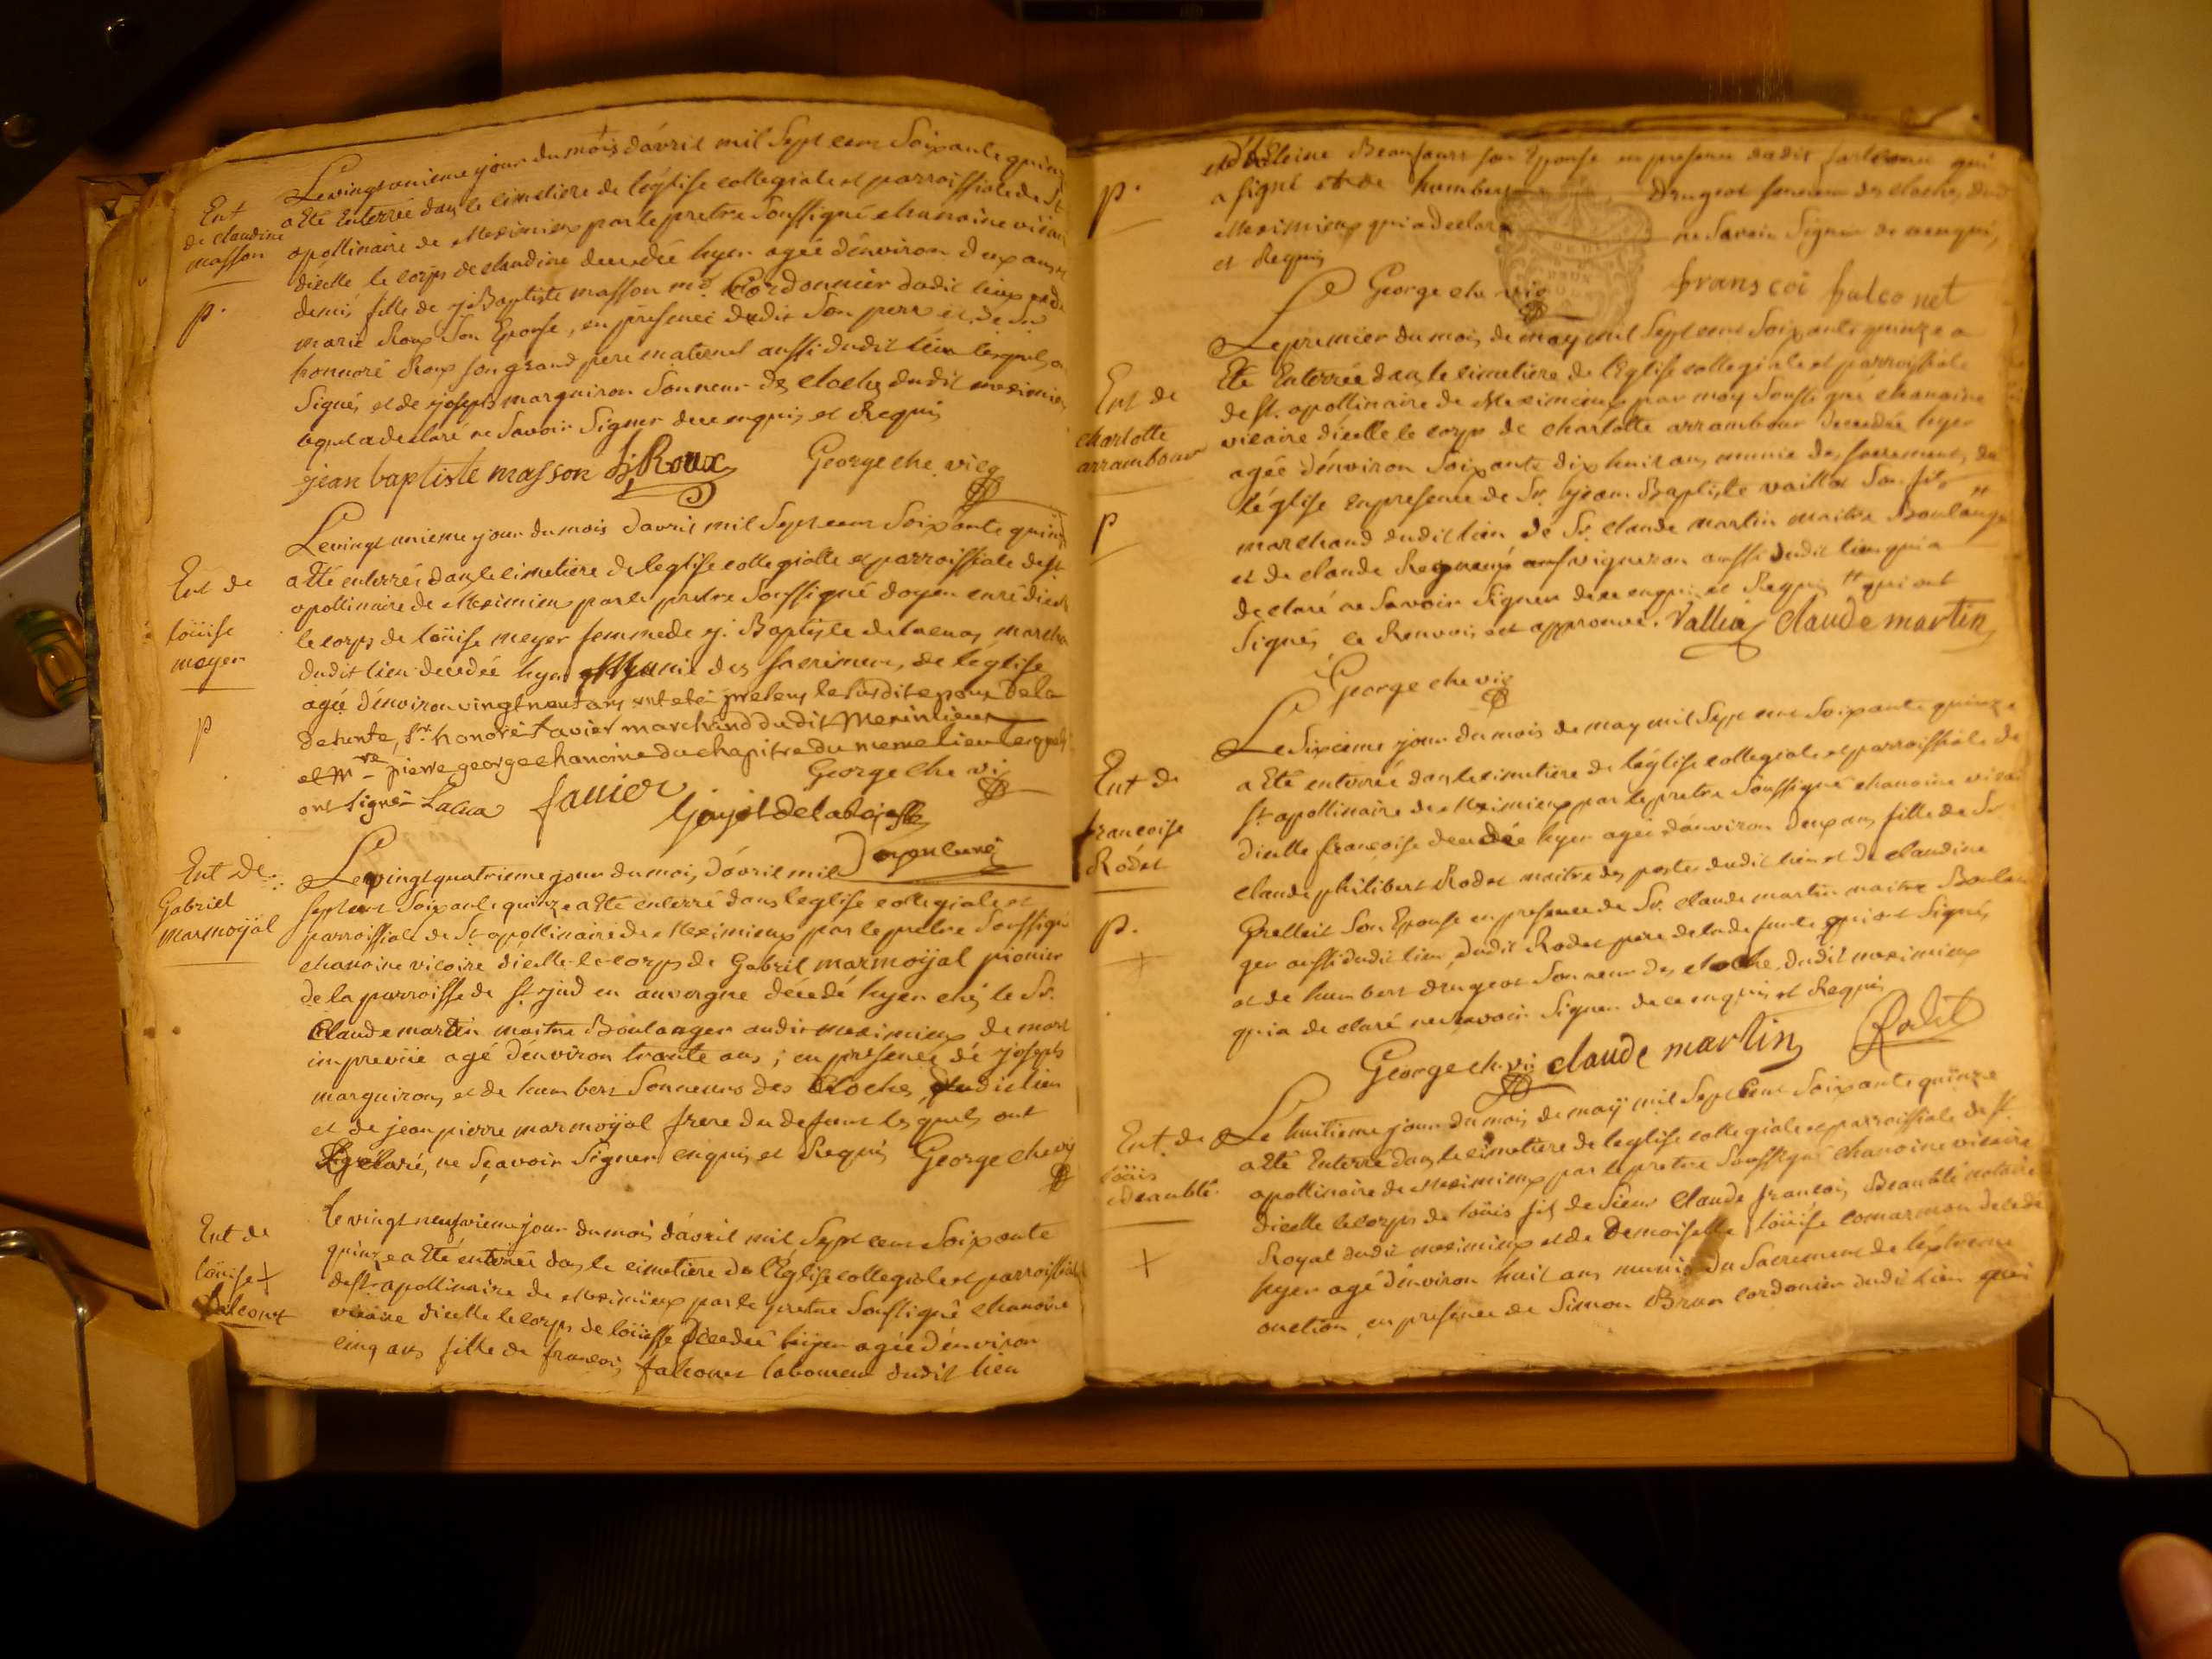 Ent
de claudine
masson
p.
Le vingt unieme jour du mois d'avril mil sept cent soixante quin
a eté enterrée dans le cimetiere de l'église collegiale et parroissiale de St
apollinaire de Meximieux par le pretre soussigné chanoine vicai
d'icelle le corps de claudine decedée hyer agée d'environ deux ans et
demi, fille de j. Baptiste masson me. Cordonnier dudit lieu et de
marie Roux son Epouse, en presence dudit son pere et de Sr.
honnoré Roux son grand pere maternel aussi dudit lieu lesquels
signés et de joseph marguiron sonneur des cloches dudit meximieu
lequel a declaré ne savoir signer de ce enquis et Requis
jean baptiste masson h. Roux George che vic
Ent de
loüise
meyer
p
Le vingt unieme jour du mois d'avril mil sept cent soixante quin
a eté enterrée dans le cimetiere de l'eglise collegialle et parroissiale de st
apollinaire de Meximieux par le pretre soussigné doyen curé d'icel
le corps de loüise meyer femme de j. Baptiste marcha
dudit lieu decedée hyer Munie des sacremens de l'église
agée d'environ vingt neuf ans ont eté presens le susdit epoux de la
defunte, Sr. honoré favier marchand dudit Meximieux
et Mre pierre george chanoine du chapitre du meme lieu lesquels
ont signés favier George che vi
Doyen curé
Ent de
Gabriel
marmoyal
Le vingt quatrieme jour du mois d'avril mil
sept cent soixante quinze a eté enterré dans l'eglise collegiale et
parroissiale de St apollinaire de Meximieux par le pretre soussigné
chanoine vicaire d'icelle le corps de Gabriel marmoyal pionier
de la parroisse de St. jud en auvergne décedé hyer chés le Sr.
Claude martin maitre Boulanger audit meximieux de mort
imprevüe agé d'environ trante ans; en presence de joseph
marguiron, et de humbert sonneurs des cloches dudit lieu
et de jean pierre marmoyal frere du defunt lesquels ont
declaré, ne sçavoir signer enquis et Requis George che vi
Ent de
loüise +
falconet
Le vingt neufvieme jour du mois d'avril mil sept cent soixante
quinze a eté enterrée dans le cimetiere de l'Église collegiale et parroissial
de St. apollinaire de Meximieux par le pretre soussigné chanoine
vicaire d'icelle le corps de loüise décedée hyer agée d'environ
cinq ans fille de françois falconet laboureur dudit lieu
p.
son Epouse en presence dudit falconet qui
a signé et de humbert drugeot sonneur des cloches dud
Meximieux qui a declaré ne savoir signer de ce enquis,
et Requis
George che vic françoi falconet
Ent de
charlotte
arrambour
p
Le premier du mois de may mil sept cent soixante quinze a
Eté Enterrée dans le cimetiere de l'Eglise collegiale et parroissiale
de St. apollinaire de Meximieux par moy soussigné chanoine
vicaire d'icelle le corps de charlotte arrambour decedée hyer
agée d'environ soixante dix huit ans munie des sacremens de
l'église en presence de Sr. jean Baptiste son fils
marchand dudit lieu de Sr. claude martin maitre Boulange
et de claude vigneron aussi dudit lieu qui a
declaré ne savoir signer de ce enquis et Requis # qui ont
signés, ce Renvoi est approuvé. Vallia claude martin
George che vic
Ent de
francoise
Rodet
p.
+
Le sixieme jour du mois de may mil sept cent soixante quinze
a eté enterrée dans le cimetiere de l'église collegiale et parroissiale de
St. apollinaire de Meximieux par le pretre soussigné chanoine vicai
d'icelle francoise decedée hyer agée d'environ deux ans fille de Sr
claude philibert Rodet maitre des postes dudit lieu et de claudine
Grellet son Epouse en presence de Sr. claude martin maitre Boulan
ger aussi dudit lieu, dudit Rodet pere de la defunte qui ont signés,
et de humbert drugeot sonneur des cloche, dudit meximieux
qui a declaré ne savoir signer de ce enquis et Requis
George che vic claude martin Rodet
Ent. de
loüis
Beaublé
+
Le huitieme jour du mois de may mil sept cent soixante quinze
a eté Enterré dans le cimetiere de l'eglise collegiale et parroissiale de St.
apollinaire de Meximieux par le pretre soussigné chanoine vicaire
d'icelle le corps de loüis fils de Sieur Claude françois Beaublé notaire
Royal dudit meximieux et de Demoiselle loüise comarmon decedé
hyer agé d'environ huit ans munis du sacrement de l'extreme
onction, en presence de Simon Brun cordonier dudit lieu qui